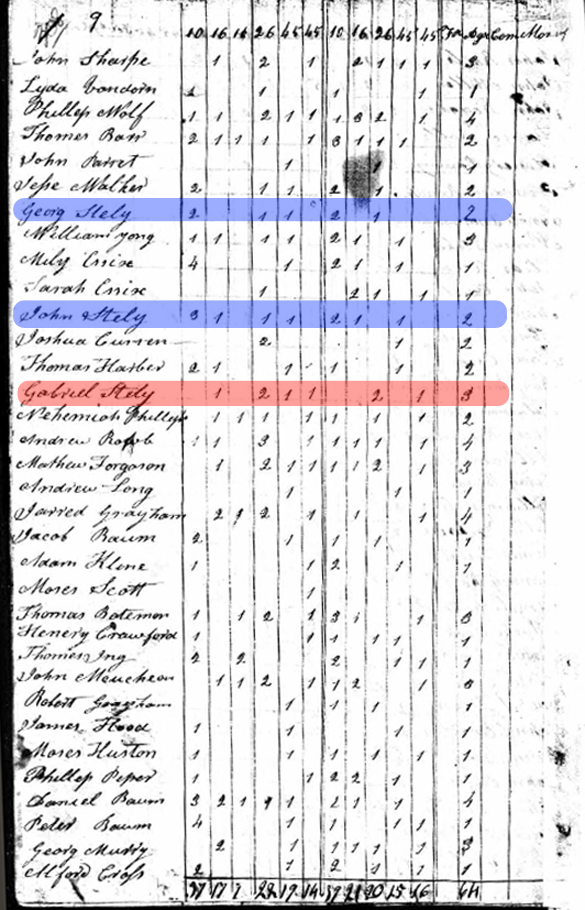 9 10 16 16 26 45 45 10 16 26 45 45 Agr Com
John Sharpe 1 2 1 2 1 1 1 3
Lyda 1 1 1 1
Phillep Wolf 1 1 2 1 1 1 3 2 1 4
Thomas Barr 2 1 1 1 1 3 1 1 1 2
John Parret 1 1 1
Jesse Walker 2 1 1 2 1 2
Georg Stely 2 1 1 2 1 2
William yong 1 1 1 1 2 1 1 3
Mily Crise 4 1 2 1 1 1
Sarah Crise 1 2 1 1 1
John Stely 3 1 1 1 2 1 1 2
Joshua Curren 2 1 2
Thomas Harber 2 1 1 1 1 2
Gabriel Stely 1 2 1 1 2 1 3
Nehemiah Phillips 1 1 1 1 1 1 1 2
Andrew 1 1 3 1 1 1 1 1 4
Mathew Forgason 1 2 1 1 1 2 1 3
Andrew Long 1 1 1
Jarred Grayham 2 1 2 1 1 1 4
Jacob Baum 2 1 1 1 1
Adam Klone 1 1 2 1 1
Moses Scott 1
Thomas Batemon 1 1 2 1 3 1 1 3
Henery Crawford 1 1 1 1 1 1
Thomas Ing 2 2 2 1 1 1
John Meucheon 1 1 2 1 1 2 1 3
Robert Grayham 1 1 1 1
James Flood 1 1 1 1
Moses Huston 1 1 1 1 1 1
Phillep Peper 1 1 2 2 1 1
Daniel Baum 3 2 1 1 2 1 1 4
Peter Baum 4 1 1 1 1 1
Georg Murry 2 1 1 1 1 1 3
Alford Cross 2 1 2 1 1 1
37 17 7 28 17 14 37 21 20 15 16 64